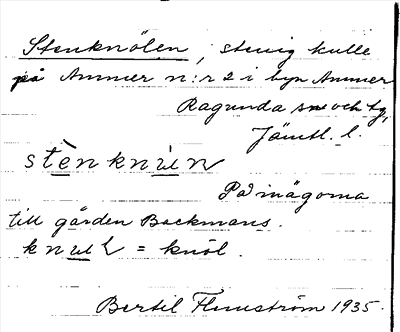 Stenknölen, stenig kulle
på Ammer n:r 2 i byn Ammer
Ragunda sn och tg,
Jämtl. l.
stènknùln
På inägorna
till gården Backmans.
knul = knöl.
Bertil Flemström 1935.